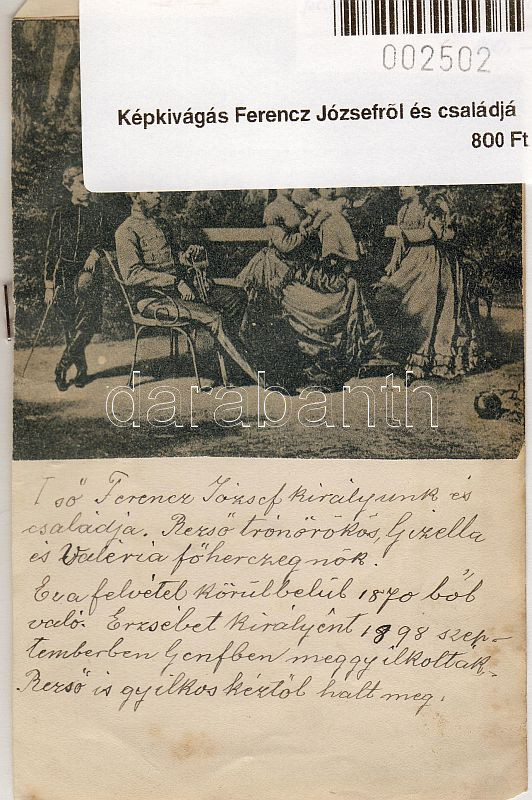 002502
Képkivágás Ferencz Józsefről és családjá
800 Ft
darabanth
I ső Ferencz József királyunk és
családja. Rezső trónörökös, Gizella
és Valéria főherczegnők.
E va felvétel körülbelül 1870 ből
való. Erzsébet királyént 1898 szep-
temberben Genfben meggyilkolták.
Rezső is gyilkos kéztől halt meg.